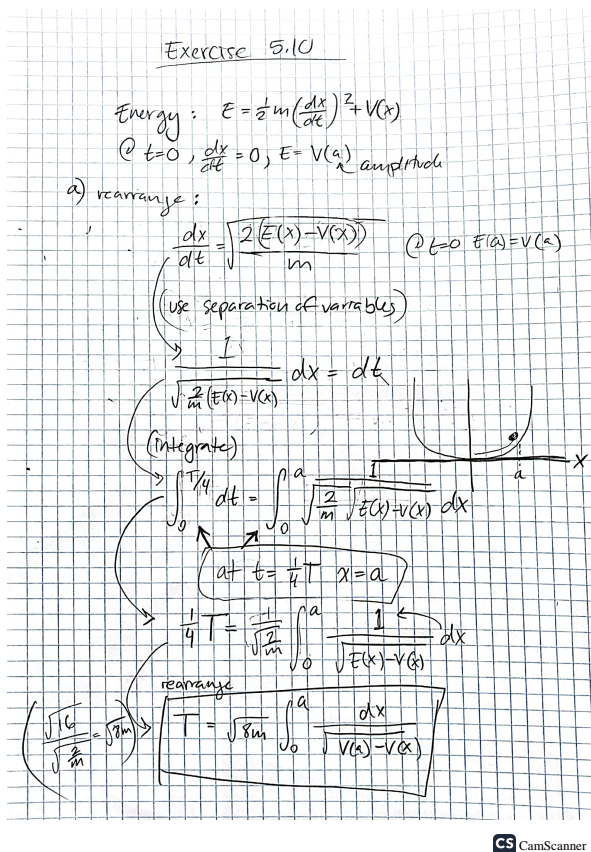 Exercise 5.10
Energy: E = ½ m (dx/dt)² + V(x)
@ t=0, dx/dt = 0, E = V(a) ↖ amplitude
a) rearrange:
dx/dt = √(2(E(x)-V(x))/m) @ t=0 E(a)=V(a)
(use separation of variables)
1/√(2/m (E(x)-V(x)) dx = dt
(integrate)
x
a
∫₀^(T/4) dt = ∫₀^a 1/(√(2/m) √(E(x)-V(x))) dx
at t = ¼T x = a
¼ T = 1/√(2/m) ∫₀^a 1/√(E(x)-V(x)) dx
rearrange
(√16/√(2/m) = √8m)
T = √8m ∫₀^a dx/√(V(a)-V(x))
CS CamScanner